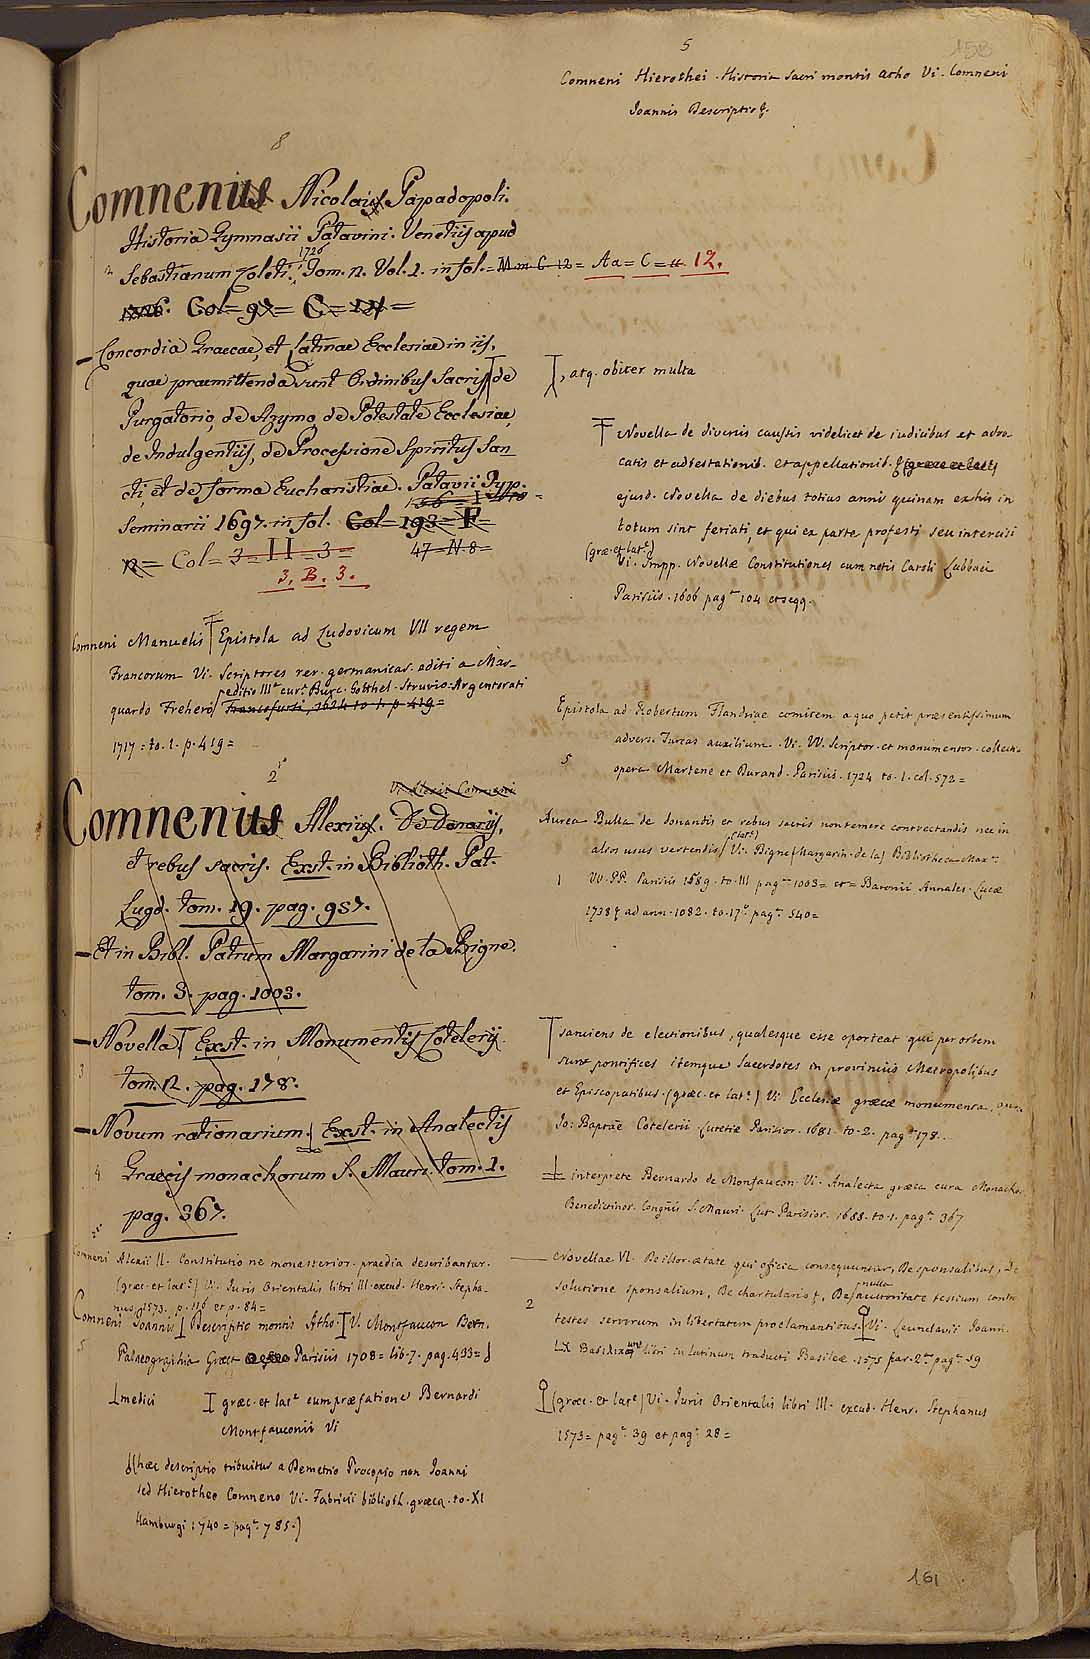 158
5
Comneni Hierothei. Historia sacri montis Atho Vi. Comneni
Ioannis Descriptio &.
8
Comnenius Nicolaus Papadopoli.
Historia Gymnasii Patavini. Venetiis apud
1726
2 Sebastianum Coleti. Tom. 2. Vol. 1. in fol. = M.m. C 12 = Aa = C = 12.
1726. Col = 97 = C = 12 =
— Concordia Graecae, et Latinae Ecclesiae in iis,
quae praemittenda sunt Ordinibus Sacris de
Purgatorio, de Azymo, de Potestate Ecclesiae,
de Indulgentiis, de Processione Spiritus San-
cti, et de forma Eucharistiae. Patavii Typ.
Seminarii 1697. in fol. Col = 193 = F =
12 = Col = 3 = II = 3 = 47 = N. 8 =
3. B. 3.
, atq. obiter multa
Novella de diversis caussis videlicet de iudicibus et advo-
catis et adtestationib. et appellationib. &
ejusd. Novella de diebus totius anni quinam ex his in
totum sint feriati, et qui ex parte profesti seu intercisi
(græ. et lat.e)
Vi. Impp. Novellæ Constitutiones cum notis Caroli Labbaei
Parisiis. 1606 pag.e 104 et seqq.
Comneni Manuelis Epistola ad Ludovicum VII regem
Francorum Vi. Scriptores rer. germanicar. editi a Mar-
editio III.a cur.e Burc. Gotthel. Struvio. Argentorati
quardo Frehero Francofurti, 1624 to. 1. p. 419 =
1717 = to. 1. p. 419 =
Epistola ad Robertum Flandriae comitem a quo petit præsentissimum
advers. Turcas auxilium. Vi. VV. Scriptor. et monumentor. collectio
5 opera Martene et Durand. Parisiis. 1724 to. 1. col. 572 =
2
Vi Alexii Comneni
Comnenius Alexius. De donariis,
et rebus sacris. Exst. in Biblioth. Pat.
Lugd. tom. 19. pag. 957.
— Et in Bibl. Patrum Margarini de la Bigne.
tom. 3. pag. 1003.
Aurea Bulla de donandis et rebus sacris non temere contrectandis nec in
(lat.e)
alios usus vertendis Vi. Bigne (Margarin. de la) Bibliotheca Max.
1 VV. PP. Parisiis 1589. to. III pag. 1003 = et = Baronii Annales. Lucæ
1738 & ad ann. 1082. to. 17.o pag.e 540 =
— Novella Exst. in Monumentis Cotelerii.
3 tom. 2. pag. 178.
sanciens de electionibus, qualesque esse oporteat qui per orbem
sunt pontifices itemque sacerdotes in provinciis Metropolibus
et Episcopatibus. (græc. et lat.e) Vi Ecclesiæ græcæ monumenta,
Jo: Baptæ Cotelerii Lutetiæ Parisior. 1681. to. 2. pag.e 178.
— Novum rationarium. Exst. in Analectis
4 Graecis monachorum S. Mauri. tom. 1.
pag. 367.
interprete Bernardo de Monfaucon. Vi. Analecta græca cura Monachor.
Benedictinor. Congñis S. Mauri. Lut Parisior. 1688. to. 1. pag.e 367
Comneni Alexii II. Constitutio ne monasterior. praedia describantur.
(græc. et lat.e) Vi. Juris Orientalis libri III. excud. Henri. Stepha-
nus 1573. p. 116 et p. 84 =
Comneni Ioannis Descriptio montis Atho. V. Montfaucon Bern.
5 Palaeographia Græca Parisiis 1708 = lib. 7. pag. 433 =
medici græc. et lat.e cum præfatione Bernardi
Montfauconii Vi
(hæc descriptio tribuitur a Demetrio Procopio non Ioanni
sed Hierotheo Comneno Vi. Fabricii biblioth. græca. to. XI
Hamburgi 1740 = pag.e 785.)
— Novellae VI. De illor. ætate qui officia consequuntur, De sponsalibus, De
solutione sponsalium, De chartulario &, De nulla auctoritate testium contra
2 testes servorum in libertatem proclamantibus. Vi. Leunclavii Joann.
LX libri in latinum traducti Basileæ. 1575 par. 2. pag.e 59
(græc. et lat.e) Vi. Juris Orientalis libri III. excud. Henr. Stephanus
1573 = pag.e 39 et pag.e 28 =
161